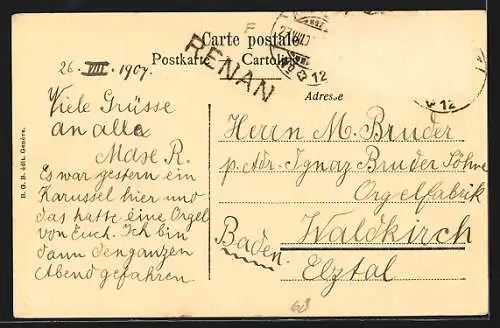 Carte postale.
Postkarte. Cartoli
RENAN
12
12
Adresse
26. VIII. 1907.
Viele Grüsse
an alle
Mdse R.
Es war gestern ein
Karussel hier und
das hatte eine Orgel
von Euch. Ich bin
dann den ganzen
Abend gefahren
Herrn M. Bruder
p. Adr. Ignaz Bruder Söhne
Orgelfabrik
Waldkirch
Baden.
Elztal
68
B. G. B. édit. Genève.